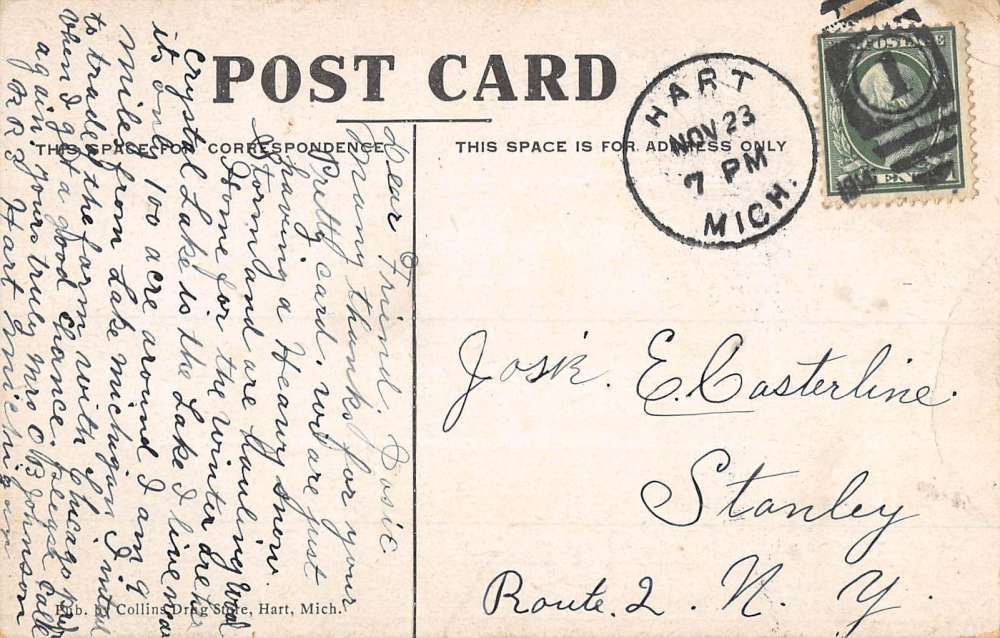 POST CARD
THIS SPACE FOR CORRESPONDENCE
THIS SPACE IS FOR ADDRESS ONLY
HART
NOV 23
7 PM
MICH.
POSTAGE
1
Dear Friend. Josie
Many thanks for your
Pretty card. we are just
having a Heavy snow
Storm and are hauling Wood
Home for the winter
Crystal Lake is the Lake I live near
its only 100 acre around I am 9
Mile from Lake michigan I
to trade the farm with
when I get a good chance. Please Call
again yours truly Mrs O B Johnson
R R 3 Hart Michigan
Josie. E. Casterline.
Stanley
Route. 2. N. Y.
Pub. by Collins Drug Store, Hart, Mich.